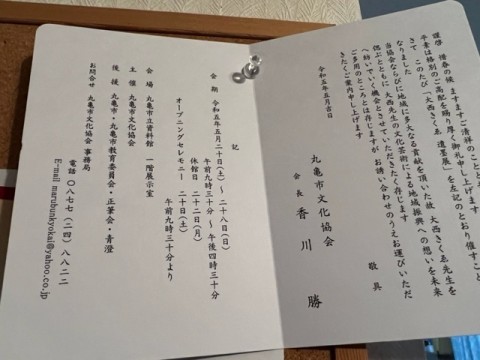 謹啓 惜春の候 ますますご清祥のこととお
平素は格別のご高配を賜り厚く御礼申し上げます
さて このたび「大西きくゑ 遺墨展」を左記のとおり催すこと
なりました
当協会ならびに地域に多大なる貢献を頂いた故 大西きくゑ先生を
偲ぶとともに 大西先生の文化芸術による地域振興への想いを未来
へ紡いでいく機会とさせていただきたく存じます
ご多用のところとは存じますが お誘い合わせのうえお運びいただ
きたくご案内申し上げます
敬具
令和五年五月吉日
丸亀市文化協会
会長 香川 勝
記
会期 令和五年五月二十日(土)～二十八日(日)
午前九時三十分～午後四時三十分
休館日 二十二日(月)
オープニングセレモニー 二十日(土)
午前九時三十分より
会場 丸亀市立資料館 一階展示室
主催 丸亀市文化協会
後援 丸亀市・丸亀市教育委員会・正筆会・青澄
お問合せ 丸亀市文化協会 事務局
電話 〇八七七(二四)八八二二
E-mail marubunkyokai@yahoo.co.jp